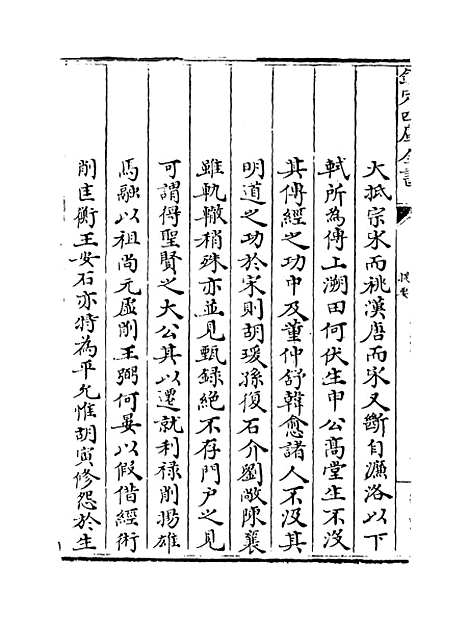 欽定四庫全書
提要
大抵宗宋而祧漢唐而宋又斷自濂洛以下
軾所為傳上溯田何伏生申公高堂生不没
其傳經之功中及董仲舒韓愈諸人不没其
明道之功於宋則胡瑗孫復石介劉敞陳襄
雖軌轍稍殊亦並見甄録絶不存門户之見
可謂得聖賢之大公其以遷就利禄削揚雄
馬融以祖尚元虛削王弼何晏以假借經術
削匡衡王安石亦特為平允惟胡寅修怨於生